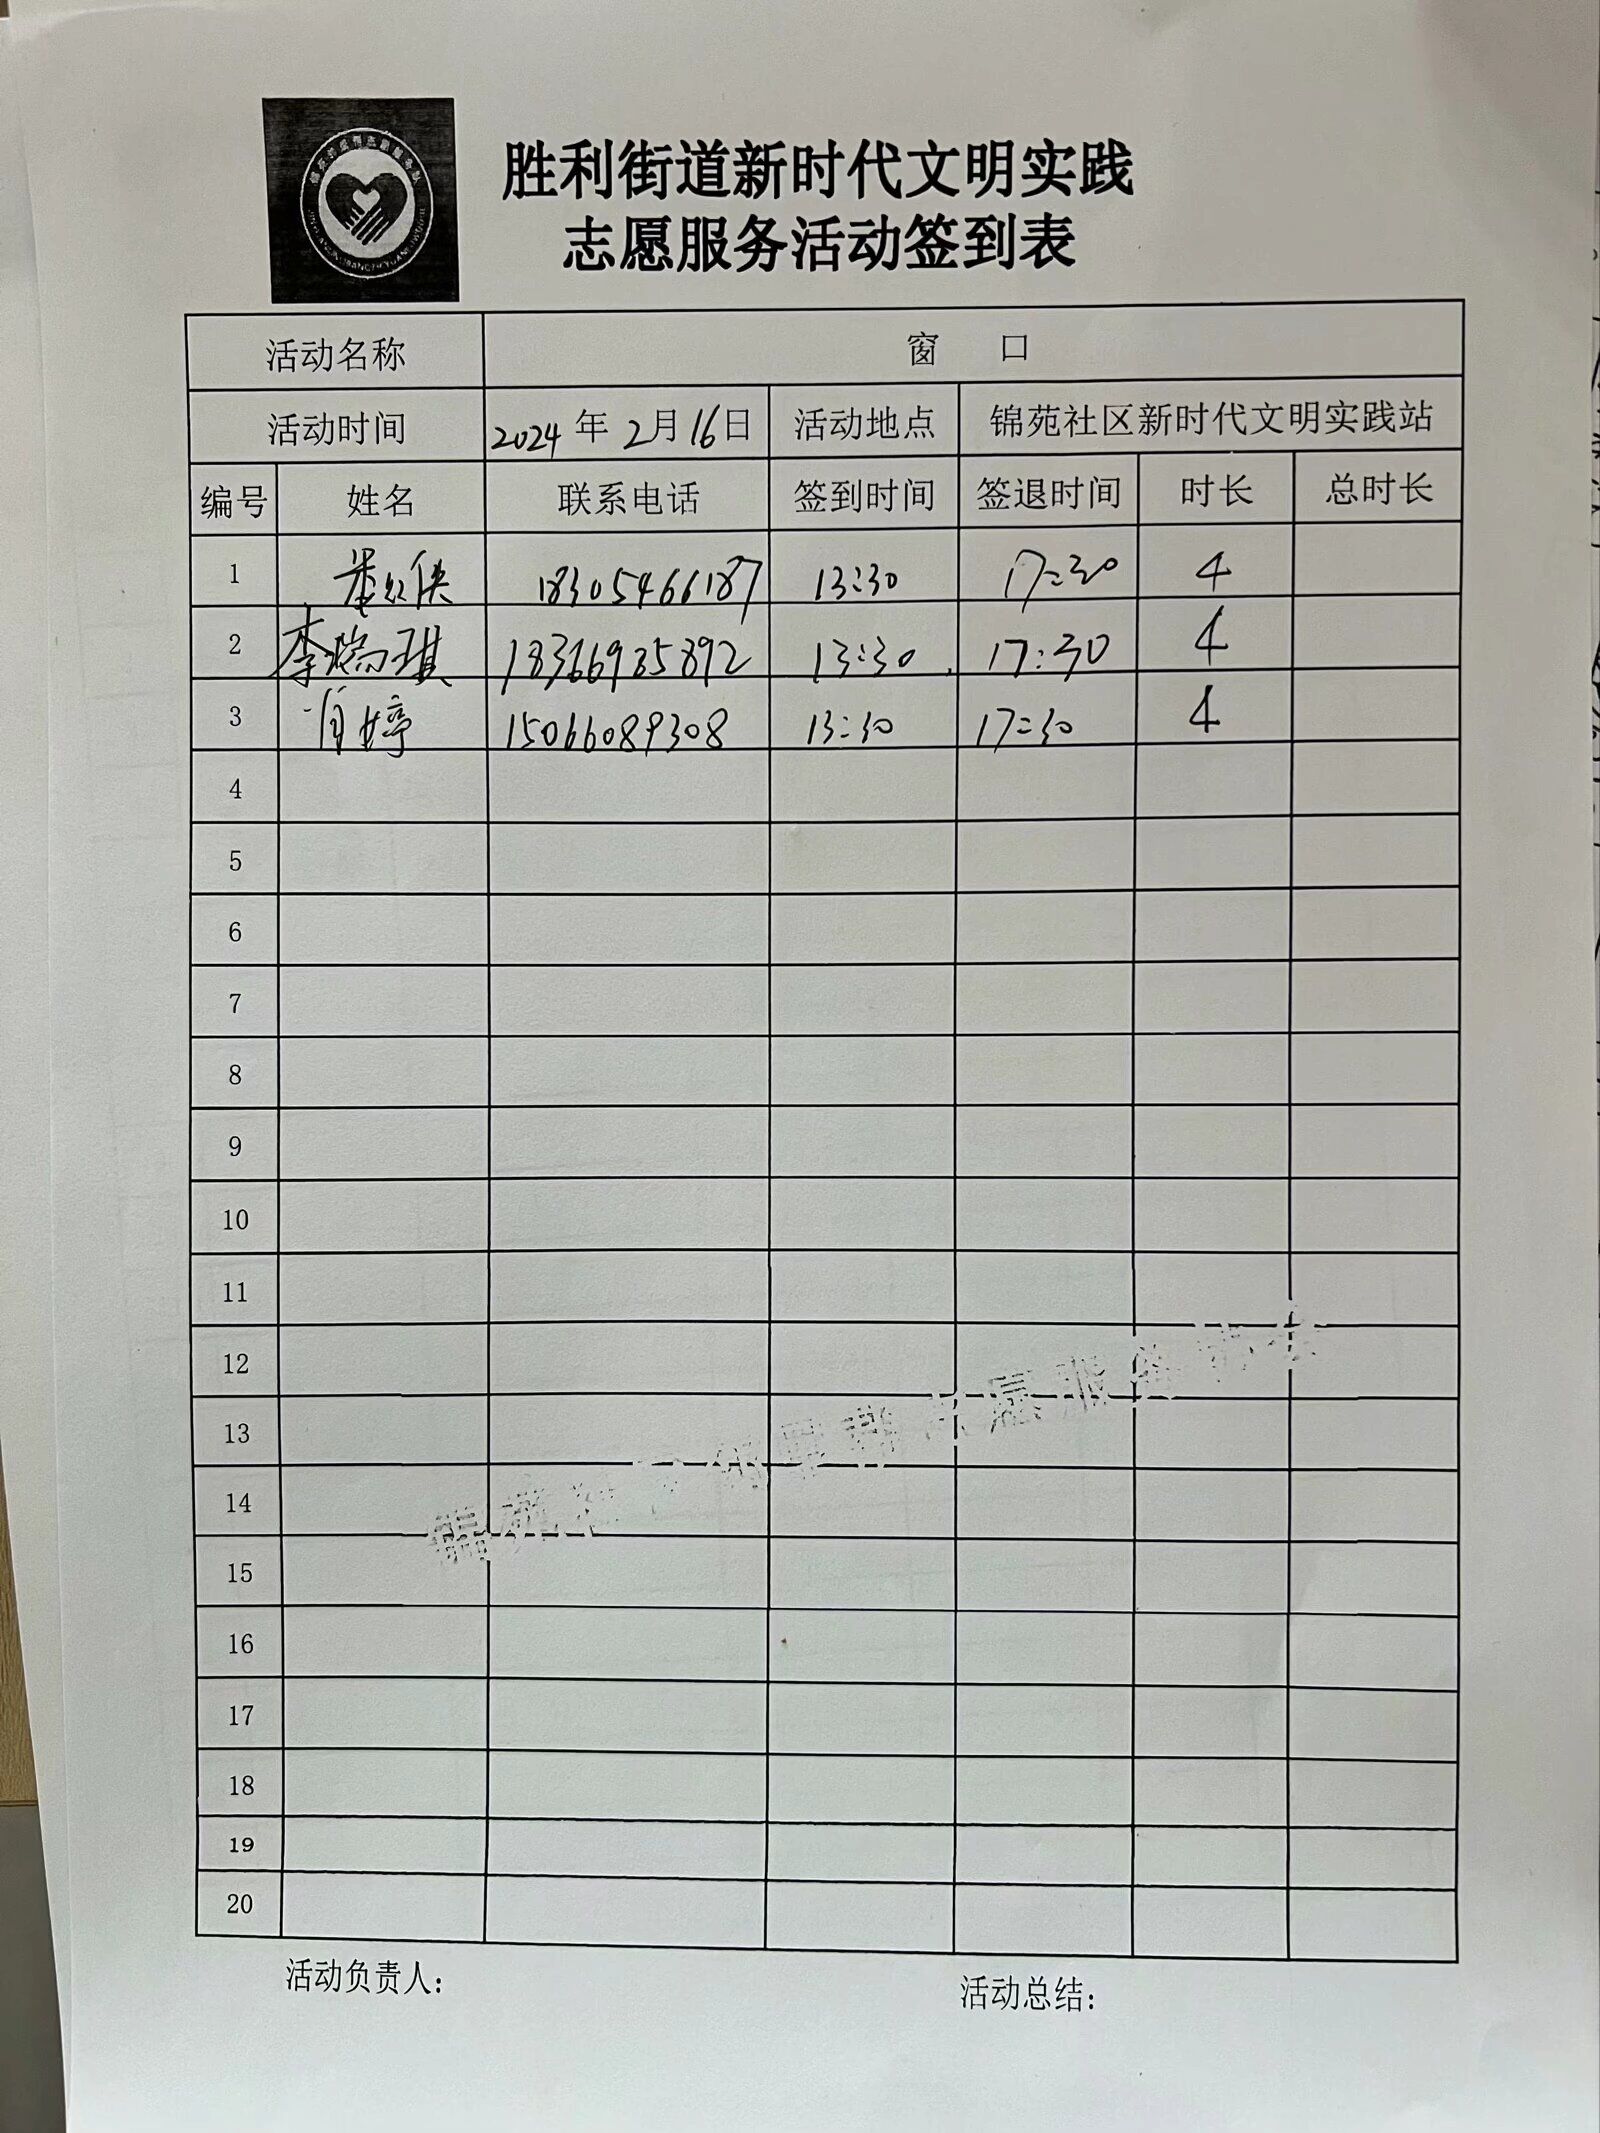 胜利街道新时代文明实践
志愿服务活动签到表
活动名称 窗 口
活动时间 2024年2月16日 活动地点 锦苑社区新时代文明实践站
编号 姓名 联系电话 签到时间 签退时间 时长 总时长
1 18305466187 13:30 17:30 4
2 李瑞琪 18366935892 13:30 17:30 4
3 肖婷 15066089308 13:30 17:30 4
4
5
6
7
8
9
10
11
12
13
14
15
16
17
18
19
20
活动负责人:
活动总结: